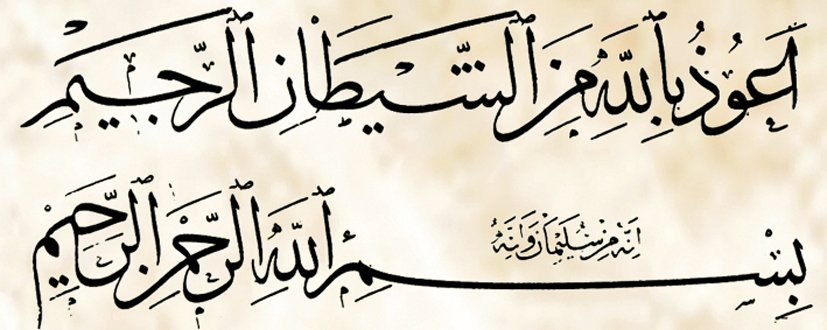 اَعُوذُ بِاللّٰهِ مِنَ الشَّيْطَانِ الرَّجِيمِ
اِنَّهُ مِنْ سُلَيْمَانَ وَاِنَّهُ
بِسْمِ اللّٰهِ الرَّحْمٰنِ الرَّحِيمِ